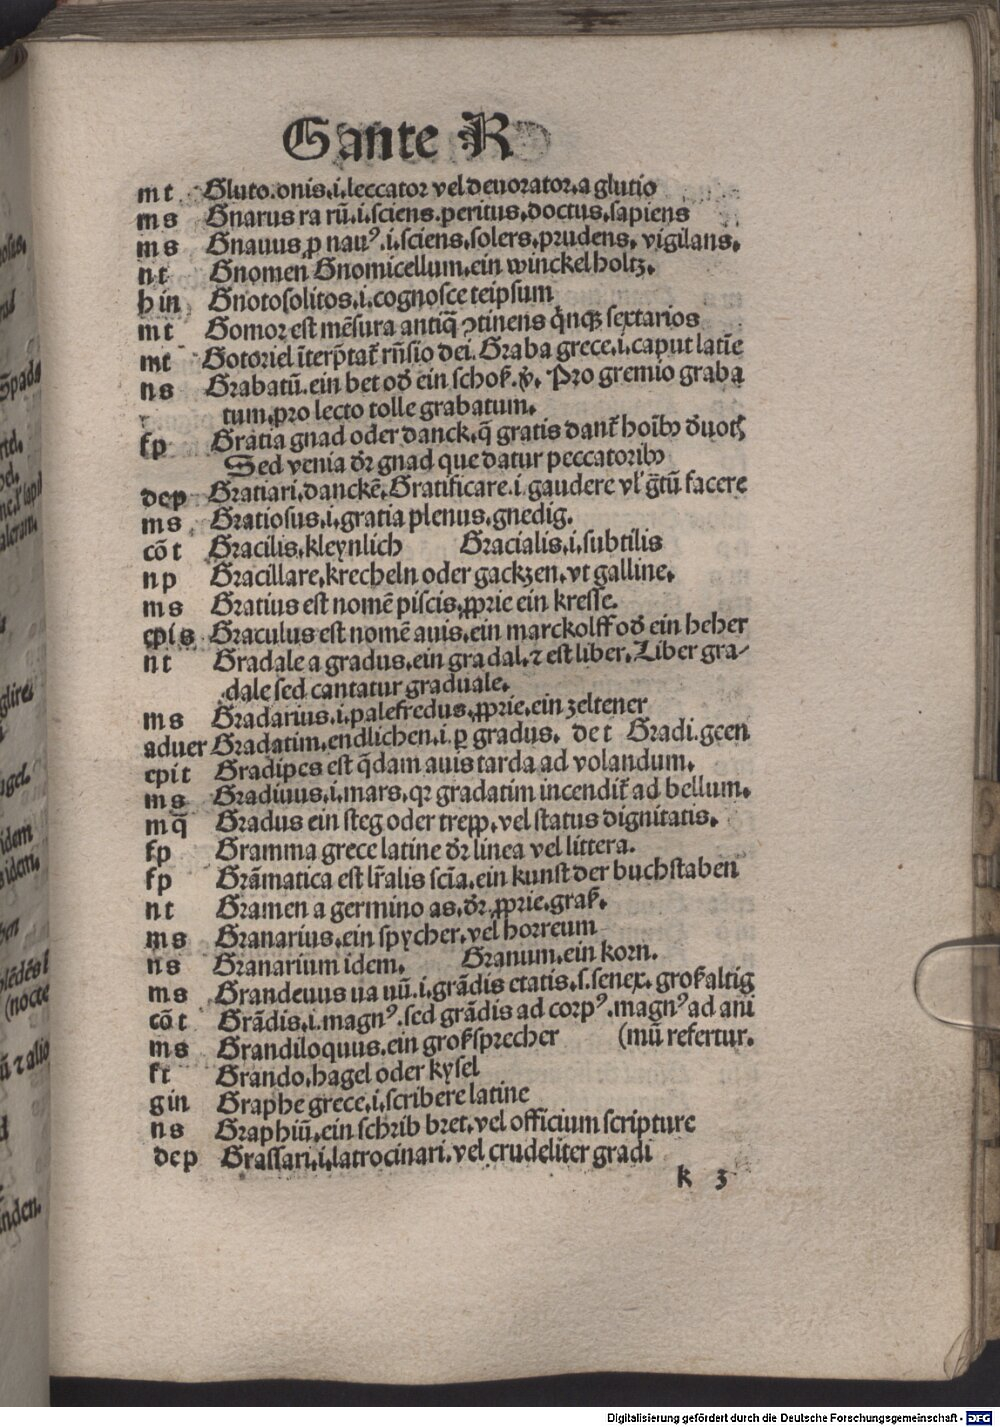 G ante R
m t Gluto.onis.i.leccator vel deuorator.a glutio
m s Gnarus ra rū.i.sciens.peritus.doctus.sapiens
m s Gnauus ꝓ nauꝰ.i.sciens.solers.prudens. vigilans.
n t Gnomen Gnomicellum.ein winckel holtz.
h in Gnotosolitos.i.cognosce teipsum
m t Gomor est mēsura antiq̄ ꝯtinens q̄nqꝫ sextarios
mt Gotoriel īterp̄tat᷑ rn̄sio dei. Graba grece.i.caput latīe
n s Grabatū.ein bet od̓ ein schoß.v̓. Pro gremio graba
tum.pro lecto tolle grabatum.
f p Gratia gnad oder danck.q̄ gratis dant᷑ hoībꝫ d̓uotꝭ
Sed venia d̓r gnad que datur peccatoribꝫ
dep Gratiari.danckē.Gratificare.i.gaudere vl̓ g̈tū facere
m s Gratiosus.i.gratia plenus.gnedig.
cō t Gracilis.kleynlich Gracialis.i.subtilis
n p Gracillare.krecheln oder gackzen.vt galline.
m s Gratius est nomē piscis.ꝓprie ein kresse.
epi s Graculus est nomē auis.ein marckolff od̓ ein heher
n t Gradale a gradus.ein gradal.⁊ est liber.Liber gra⸗
dale sed cantatur graduale.
m s Gradarius.i.palefredus.ꝓprie.ein zeltener
aduer Gradatim.endlichen.i.ꝑ gradus. de t Gradi.geen
epi t Gradipes est q̄dam auis tarda ad volandum.
m s Gradiuus.i.mars.qꝛ gradatim incendit᷑ ad bellum.
m q̄ Gradus ein steg oder trepp.vel status dignitatis.
f p Gramma grece latine d̓r linea vel littera.
f p Grāmatica est lr̄alis scīa.ein kunst der buchstaben
n t Gramen a germino as.d̓r.ꝓprie.graß.
m s Granarius.ein spycher.vel horreum
n s Granarium idem. Granum.ein korn.
m s Grandeuus ua uū.i.grādis etatis.s.senex.großaltig
cō t Grādis.i.magnꝰ.sed grādis ad corpꝰ.magnꝰ ad ani
m s Grandiloquus.ein großsprecher (mū refertur.
f t Grando.hagel oder kysel
g in Graphe grece.i.scribere latine
n s Graphiū.ein schrib bret.vel officium scripture
dep Grassari.i.latrocinari.vel crudeliter gradi
k 3
Digitalisierung gefördert durch die Deutsche Forschungsgemeinschaft - DFG